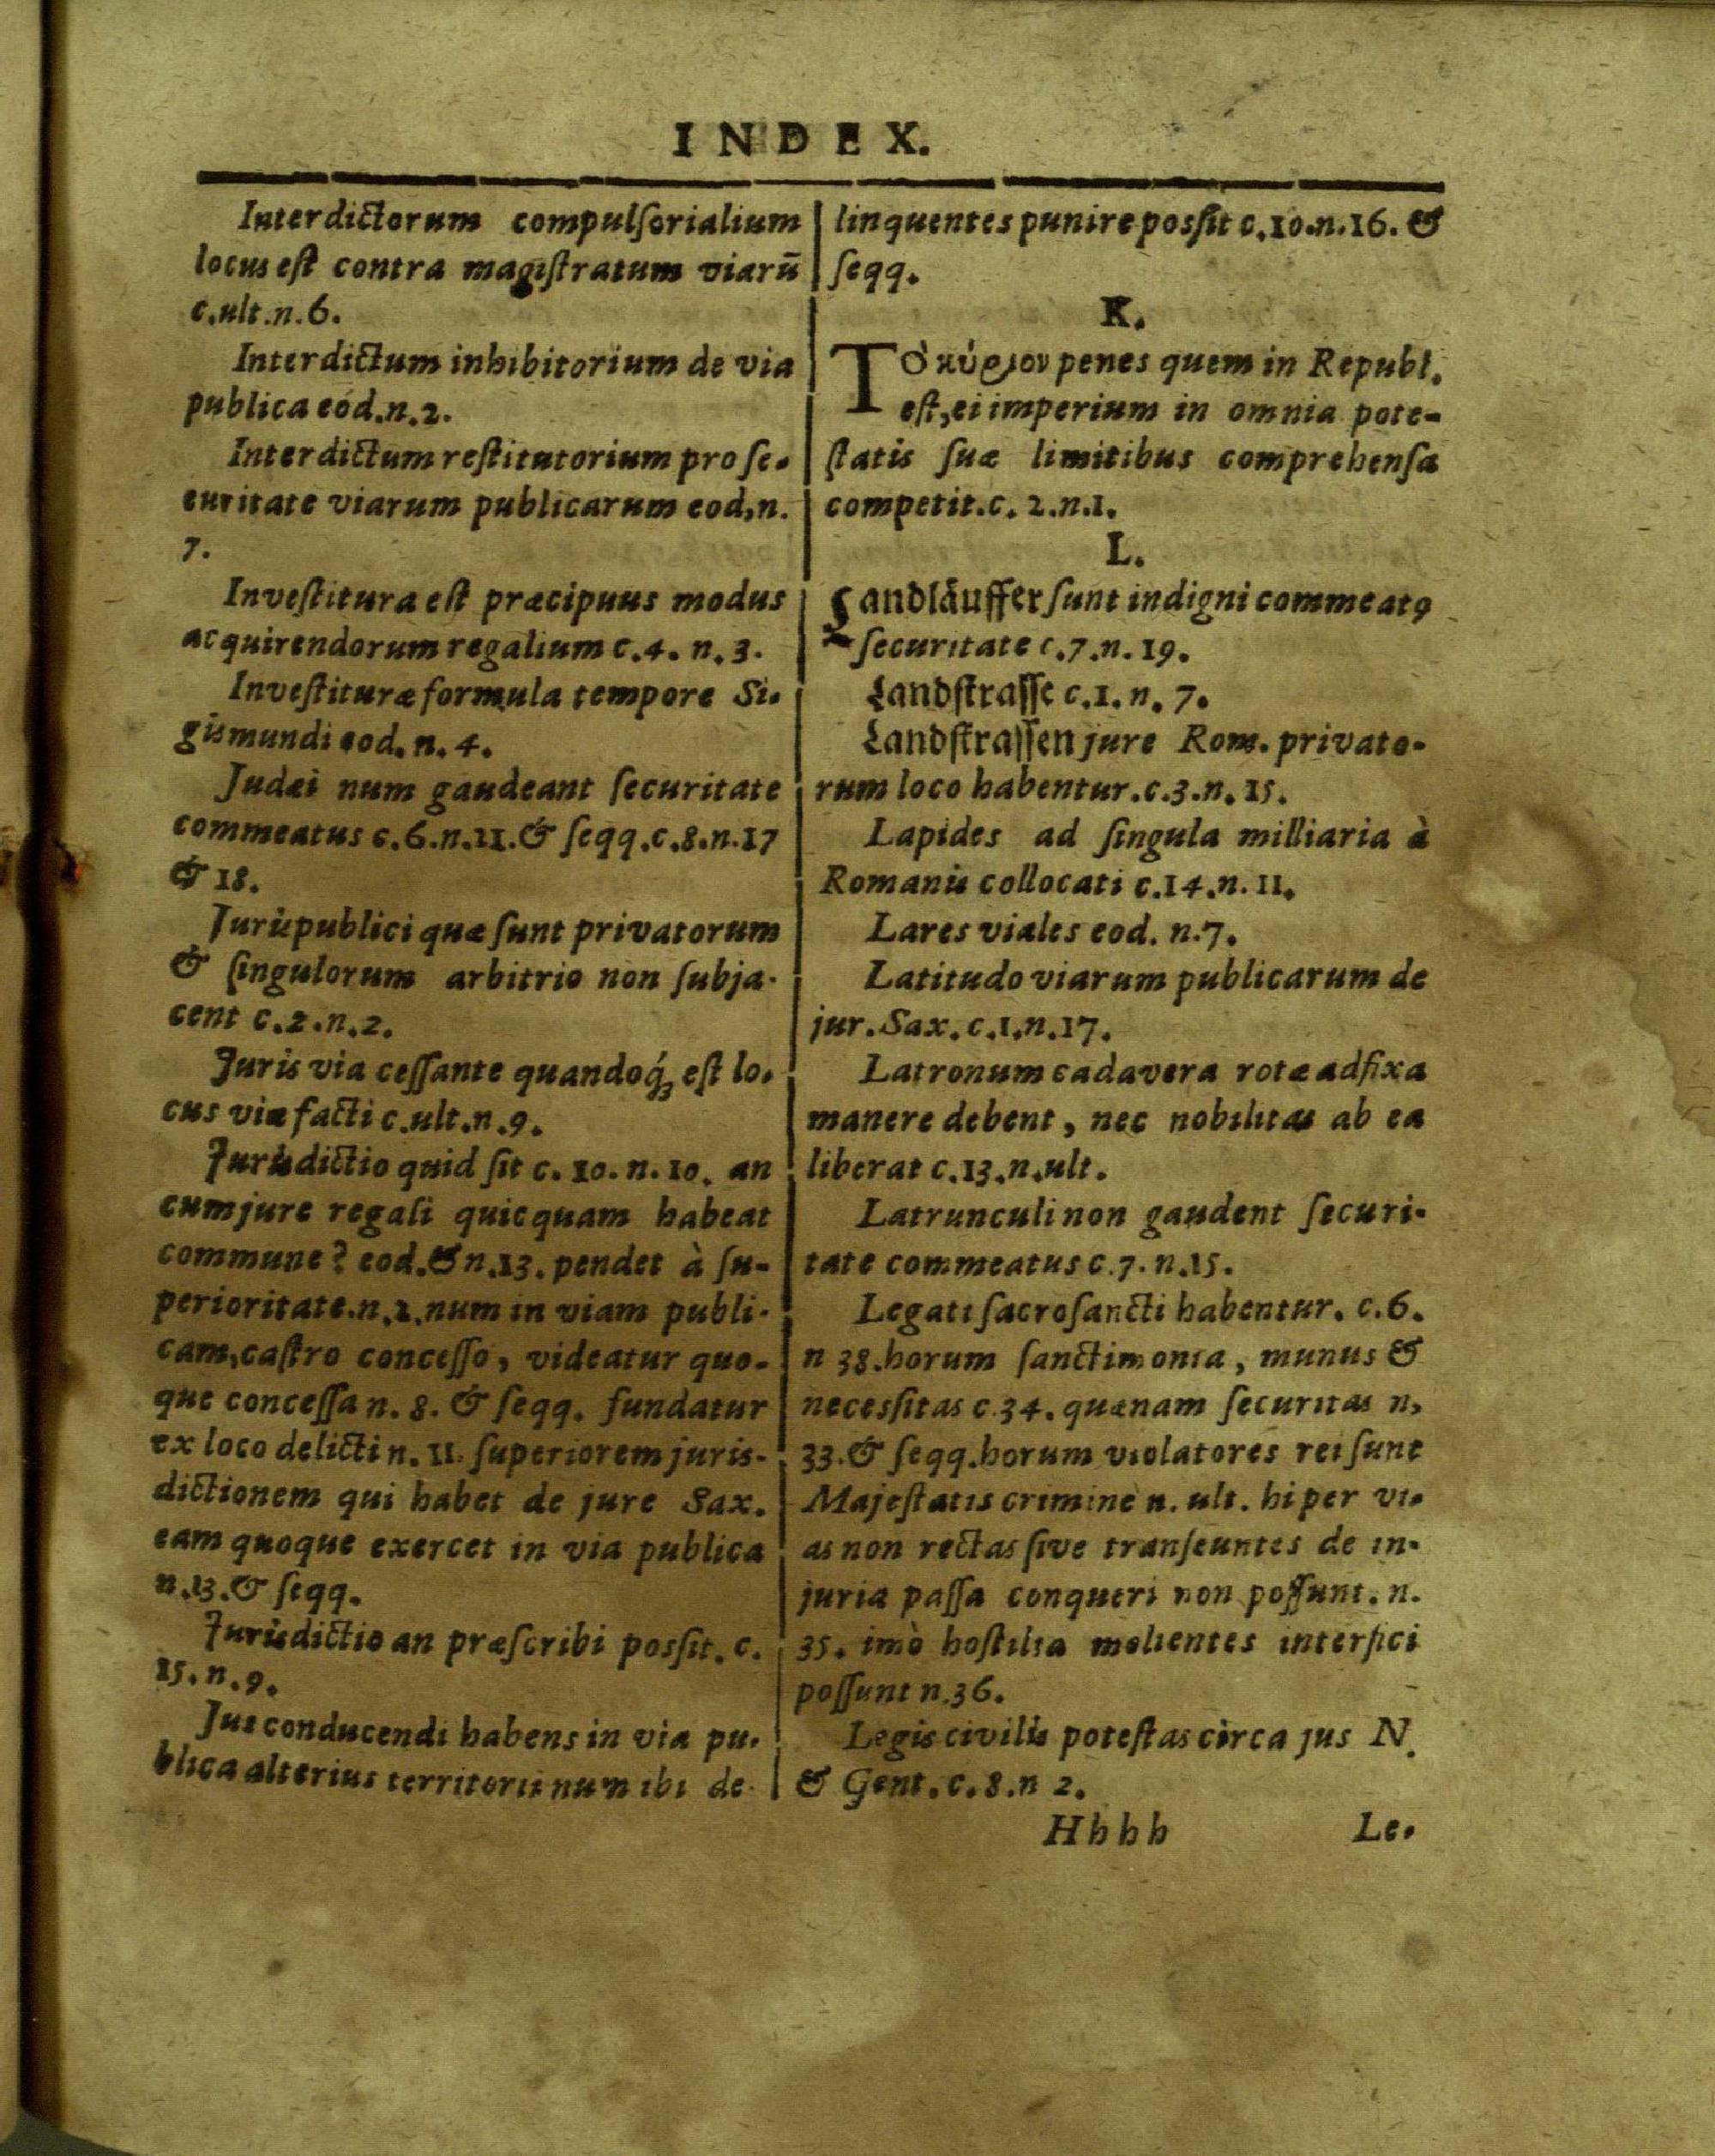 INDEX.
Interdictorum compulſorialium
locus eſt contra magiſtratum viarū
c.ult.n.6.
Interdictum inhibitorium de via
publica eod.n.2.
Interdictum reſtitutorium pro ſe-
curitate viarum publicarum eod,n.
7.
Inveſtitura eſt præcipuus modus
acquirendorum regalium c.4. n.3.
Inveſtituræ formula tempore Si-
gismundi eod. n. 4.
Judæi num gaudeant ſecuritate
commeatus c.6.n.11.& ſeqq.c.8.n.17
& 18.
Juris publici quæ ſunt privatorum
& ſingulorum arbitrio non ſubja-
cent c.2.n.2.
Juris via ceſſante quandoq́; eſt lo-
cus viæ facti c.ult.n.9.
Jurisdictio quid ſit c. 10. n. 10. an
cum jure regali quicquam habeat
commune? eod.& n.13. pendet à ſu-
perioritate.n.2.num in viam publi-
cam,caſtro conceſſo, videatur quo-
que conceſſa n. 8. & ſeqq. fundatur
ex loco delicti n. 11. ſuperiorem juris-
dictionem qui habet de jure Sax.
eam quoque exercet in via publica
n.13.& ſeqq.
Jurisdictio an præſcribi posſit. c.
15. n. 9.
Jus conducendi habens in via pu-
blica alterius territorii num ibi de-
linquentes punire posſit c.10.n.16. &
ſeqq.
K.
Τὸ κύριον penes quem in Republ.
eſt, ei imperium in omnia pote-
ſtatis ſuæ limitibus comprehenſa
competit.c. 2.n.1.
L.
Landläuffer ſunt indigni commeatꝰ
ſecuritate c.7.n.19.
Landſtraſſe c.1. n. 7.
Landſtraſſen jure Rom. privato-
rum loco habentur.c.3.n.15.
Lapides ad ſingula milliaria à
Romanis collocati c.14.n.11.
Lares viales eod. n.7.
Latitudo viarum publicarum de
jur. Sax. c.1.n.17.
Latronum cadavera rotæ adfixa
manere debent, nec nobilitas ab ea
liberat c.13.n.ult.
Latrunculi non gaudent ſecuri-
tate commeatus c.7. n.15.
Legati ſacroſancti habentur. c.6.
n 38.horum ſanctimonia, munus &
necesſitas c.34. quænam ſecuritas n,
33.& ſeqq.horum violatores rei ſunt
Majeſtatis crimine n. ult. hi per vi-
as non rectas ſive tranſeuntes de in-
juria paſſa conqueri non poſſunt. n.
35. imò hoſtilia molientes interfici
poſſunt n.36.
Legis civilis poteſtas circa jus N.
& Gent. c.8.n 2.
Hhhh Le-